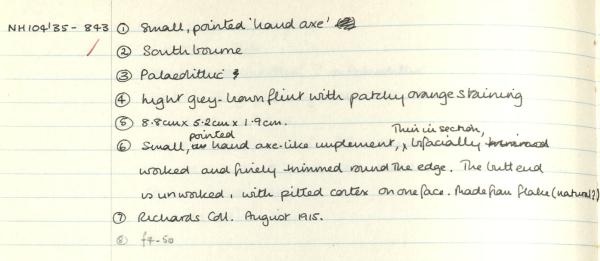 NH104'35 - 843 ① Small, pointed 'hand axe'
② Southbourne
③ Palaeolithic
④ Light grey-brown flint with patchy orange staining
⑤ 8.8cm x 5.2cm x 1.9cm.
⑥ Small, pointed hand axe-like implement, Thin in section, bifacially
worked and finely trimmed round the edge. The butt end
is unworked, with pitted cortex on one face. Made from flake (natural?)
⑦ Richards Coll. August 1915.
⑧ f7-50